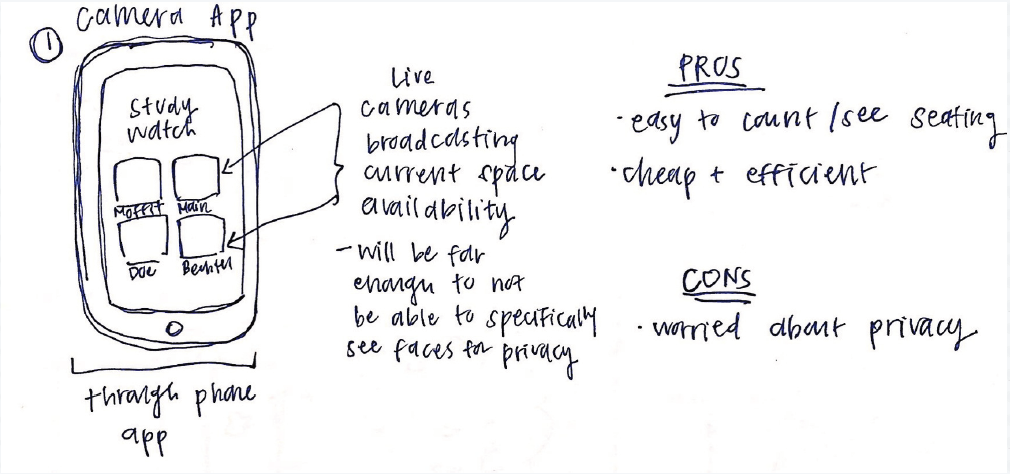 ① Camera App
Study
Watch
Moffit Main
Doe Bechtel
through phone
app
Live
cameras
broadcasting
current space
availability
- will be far
enough to not
be able to specifically
see faces for privacy
PROS
· easy to count / see seating
· cheap + efficient
CONS
· worried about privacy